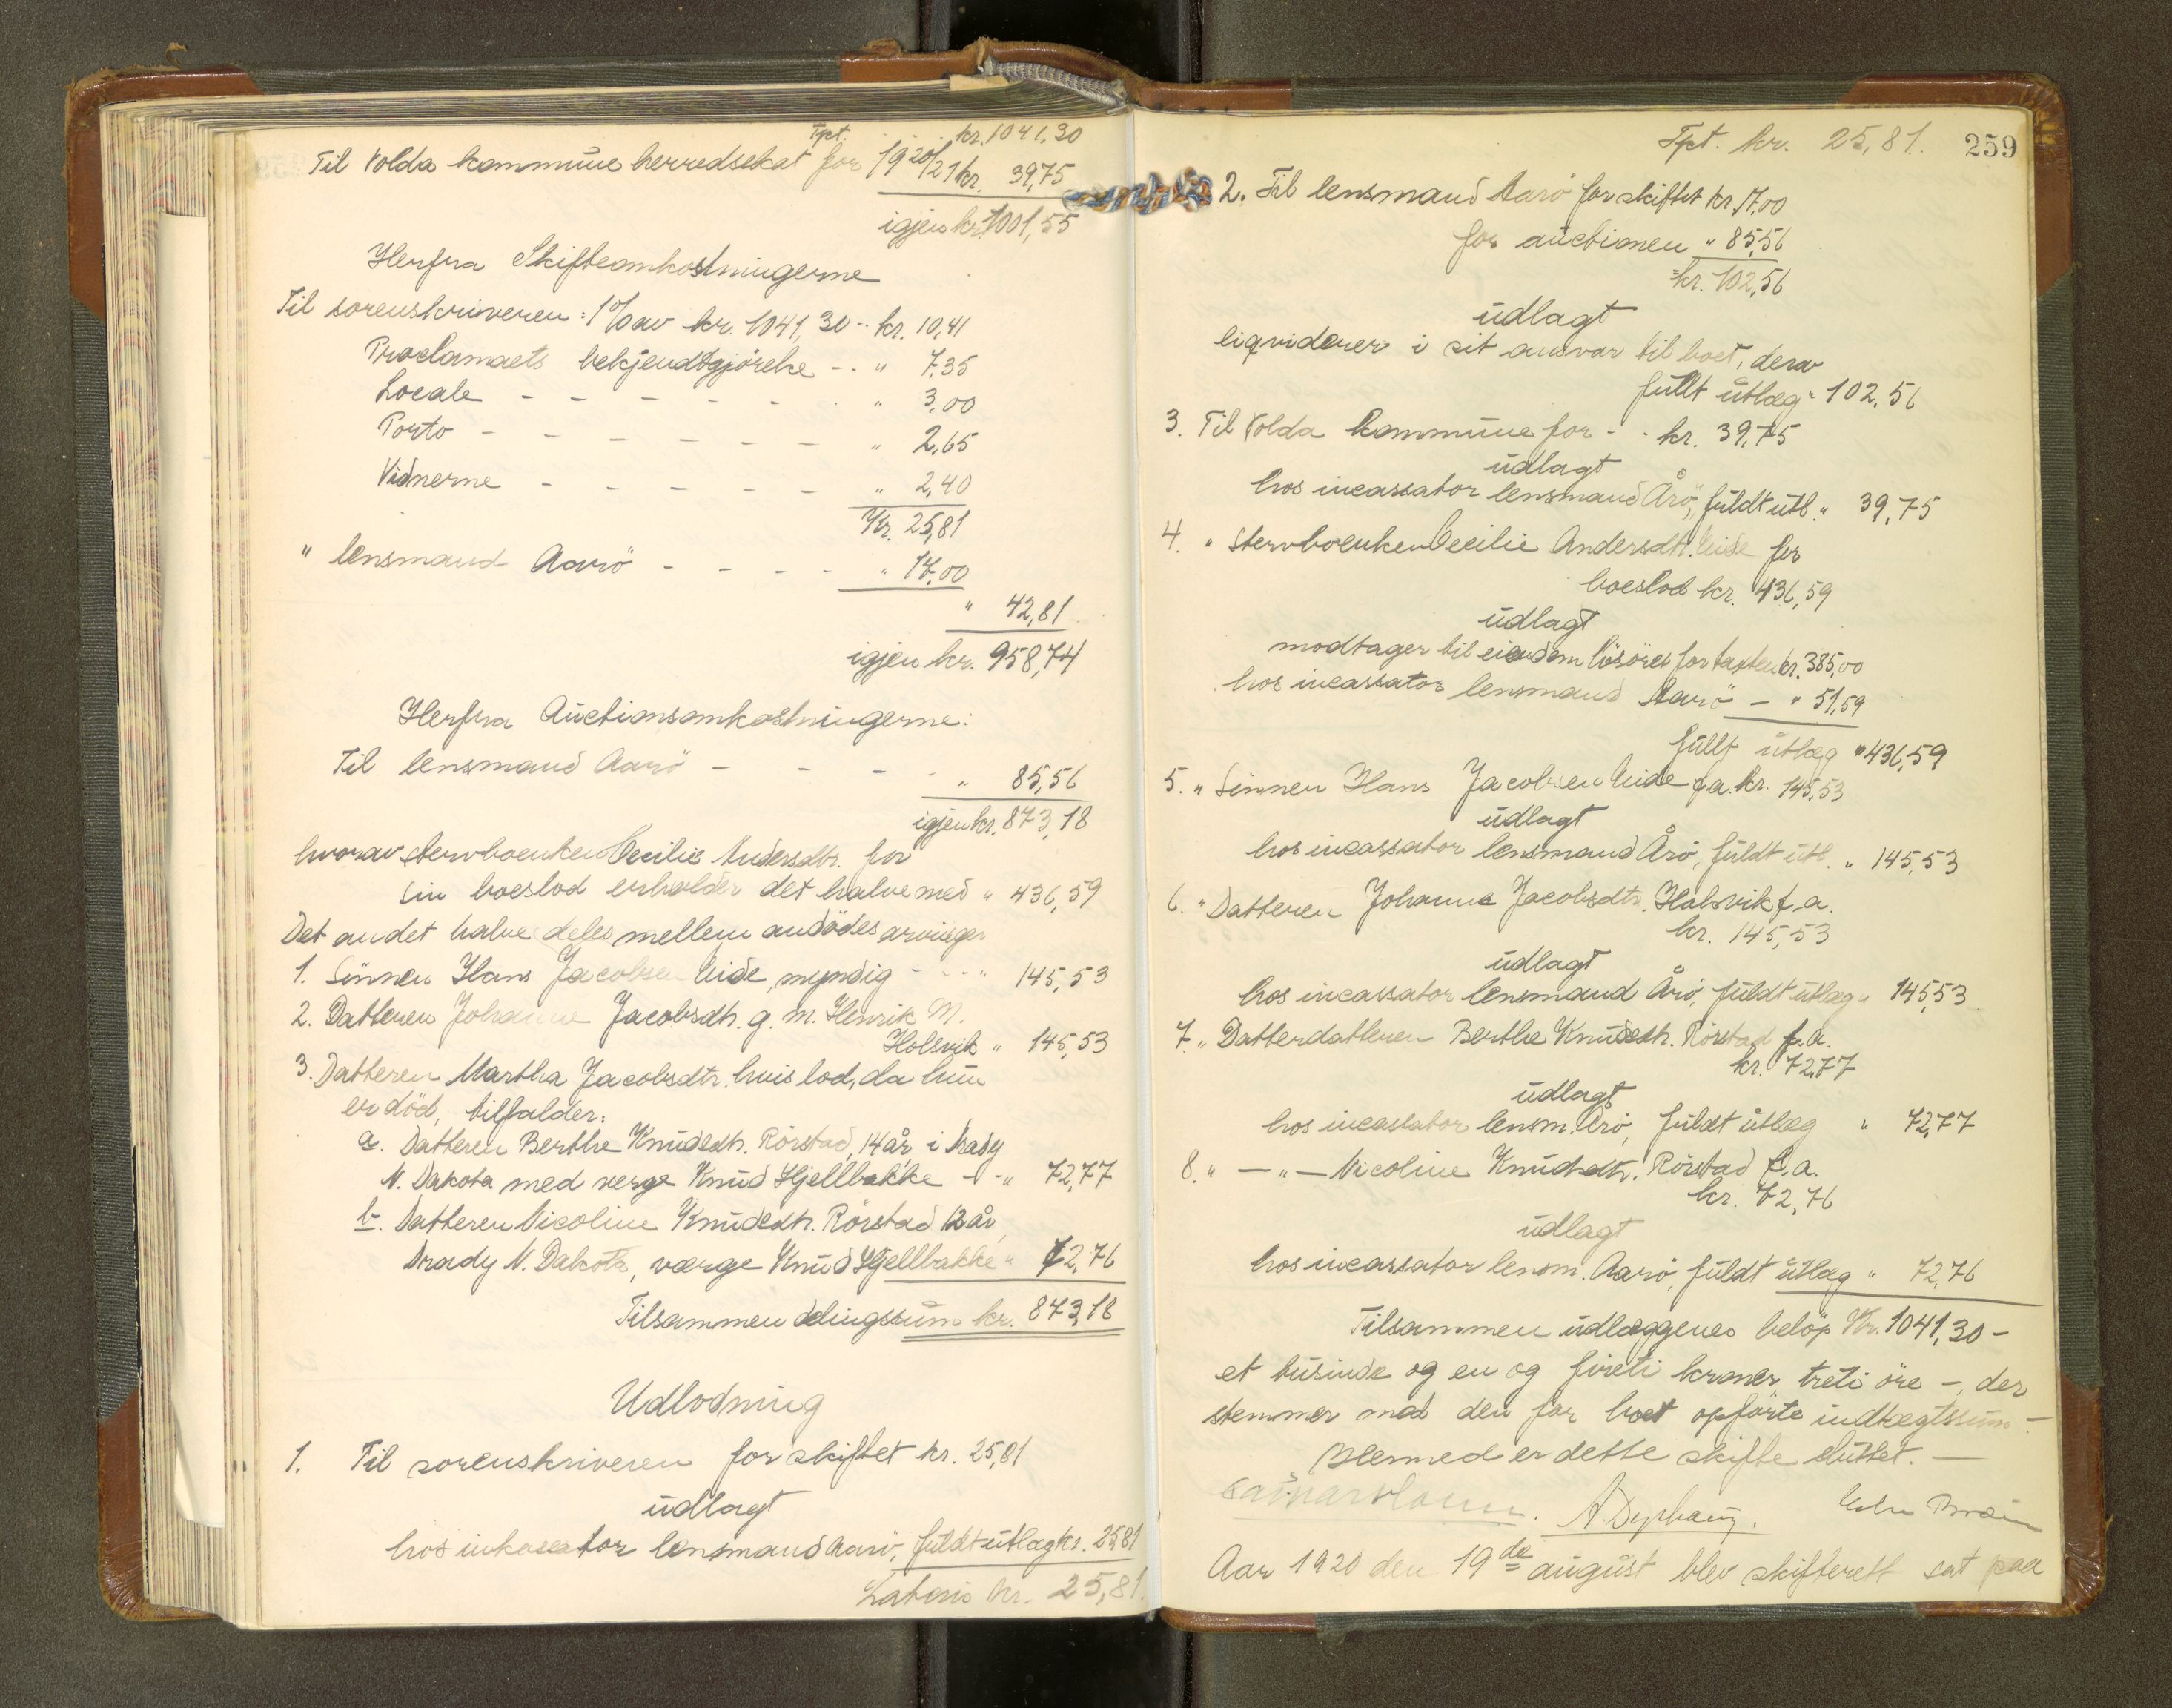 Tpt. kr. 1041,30
Til Volda kommune herredsskat for 1920/21 kr. 39,75
igjen kr. 1001,55
Herfra Skifteomkostningerne
Til sorenskriveren: 1% av kr. 1041,30 -- kr. 10,41
Proclamaets bekjendtgjörelse -- " 7,35
Locale - - - - - - " 3,00
Porto - - - - - - " 2,65
Vidnerne - - - - - " 2,40
Kr. 25,81
" lensmand Aarö - - - - " 17,00
" 42,81
igjen kr. 958,74
Herfra Auctionsomkostningerne:
Til lensmand Aarö - - - - " 85,56
igjen kr. 873,18
hvorav stervboenken Cecilie Andersdtr. for
sin boeslod erholder det halve med " 436,59
Det andet halve deles mellem avdödes arvinger
1. Sönnen Hans Jacobsen Eide, myndig - - - " 145,53
2. Datteren Johanne Jacobsdtr. g. m. Henrik M.
Holsvik " 145,53
3. Datteren Martha Jacobsdtr. hvis lod, da hun
er död, tilfalder:
a. Datteren Berthe Knudsdtr. Rörstad, 14 år i
N. Dakota med verge Knud Hjellbakke - - " 72,77
b. Datteren Nicoline Knudsdtr. Rörstad 12 år,
N. Dakota, værge Knud Hjellbakke " 72,76
Tilsammen delingssum kr. 873,18
Udlodning
1. Til sorenskriveren for skiftet kr. 25,81
udlagt
hos inkassator lensmand Aarö, fuldt utlæg kr. 25,81
Lateris kr. 25,81.
Tpt. kr. 25,81. 259
2. Til lensmand Aarö for skiftet kr. 17,00
for auctionen " 85,56
= kr. 102,56
udlagt
liqviderer i sit ansvar til boet, derav
fullt utlæg " 102,56
3. Til Volda kommune for - - kr. 39,75
udlagt
hos incassator lensmand Årö, fuldt utl. " 39,75
4. " stervboenken Cecilie Andersdtr. Eide for
boeslod kr. 436,59
udlagt
modtager til eiendom lösöret for taxten kr. 385,00
hos incassator lensmand Aarö - " 51,59
fullt utlæg " 436,59
5. " Sönnen Hans Jacobsen Eide f.a. kr. 145,53
udlagt
hos incassator lensmand Årö, fuldt utl. " 145,53
6. " Datteren Johanne Jacobsdtr. Holsvik f.a.
kr. 145,53
udlagt
hos incassator lensmand Årö, fuldt utlæg " 145,53
7. " Datterdatteren Berthe Knudsdtr. Rörstad f.a.
kr. 72,77
udlagt
hos incassator lensm. Årö, fuldt utlæg " 72,77
8. " — " — Nicoline Knudsdtr. Rörstad f.a.
kr. 72,76
udlagt
hos incassator lensm. Aarö, fuldt utlæg " 72,76
Tilsammen udlæggenes belöp Kr. 1041,30 -
et tusinde og en og fireti kroner treti öre -, der
stemmer med den for boet opförte indtægtssum -
Hermed er dette skifte sluttet. —
Aar 1920 den 19de august blev skifterett sat paa